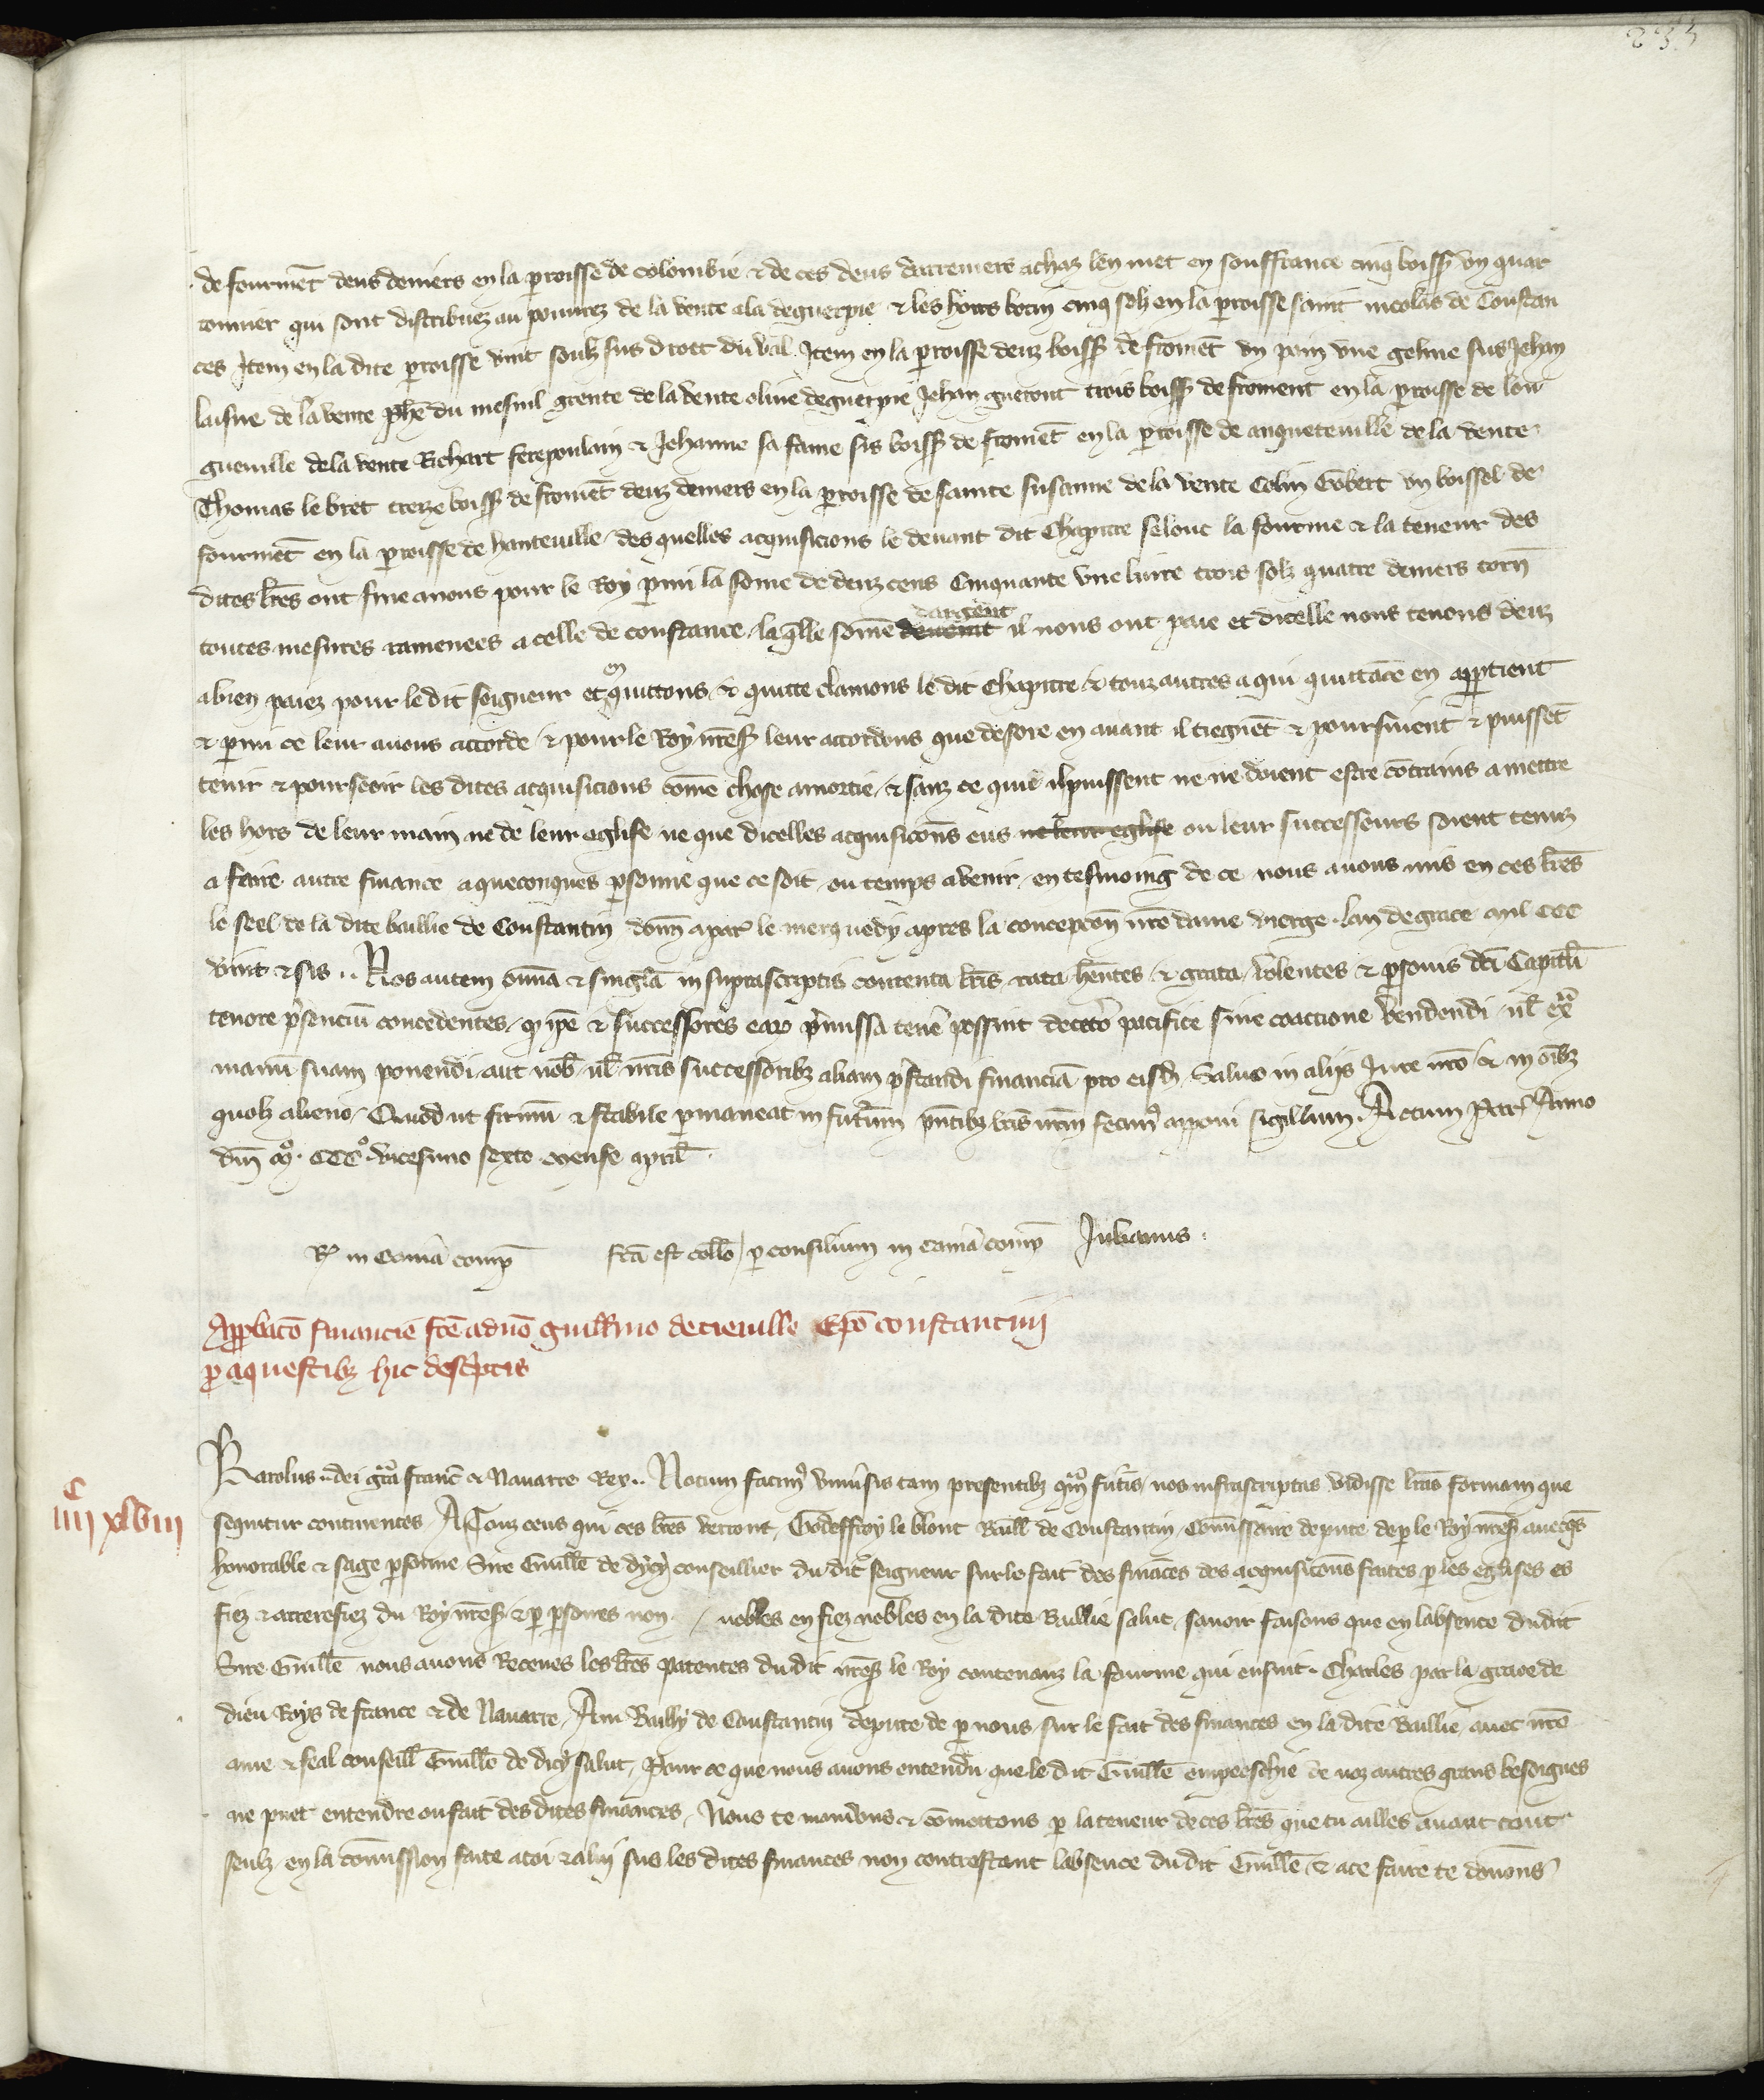 235
de fourmēt deus deniers en la p̄roisse de colombie & de ces deus derreniers achaz len met en souffrance cinq boiss̄ vn quar
tonnier qui sont distribuez au pourrez de la vente a la deguerpie & les hoirs botin cinq solz en la p̄roisse saint nicolas de Constan
ces Jtem en la dite p̄roisse vint soulz sus droet du val Jtem en la p̄roisse deuz boiss̄ de fromēt vn pain vne geline sus Jehan
laisne de la vente ph̄e du mesnil grente de la vente oliue deguerpie Jehan gueront trois boiss̄ de froment en la p̄roisse de lon
gueuille de la vente Richart fetepoulain & Jehanne sa fame sis boiss̄ de fromēt en la p̄roisse de anqueteuille de la vente
Thomas le bret treze boiss̄ de fromēt deuz deniers en la p̄roisse de sainte susanne de la vente Colin Gobert vn boissel de
fourmēt en la p̄roisse de hauteuille des quelles acquisicions le deuant dit Chapitre selonc la fourme & la teneur des
dites lr̄es ont fine auons pour le Roy p̄mi la some de deuz cens Cinquante vne liure trois solz quatre deniers torn̄
toutes mesures ramenees a celle de constance laq̄lle some deuent dargent il nous ont paie et dicelle nous tenons deuz
a bien paiez pour le dit seigneur et en quittons & quitte clamons le dit Chapitre & touz autres a qui quittāce en app̄tient
& p̄mi ce leur auons accorde & pour le Roy nr̄es̄ leur accordons que desore en auant il tiegnēt & poursiuent & puissēt
tenir & pourseoir les dites acquisicions cōme chose amortie & sanz ce que il puissent ne ne doient estre cōtrains a mettre
les hors de leur main ne de leur eglise ne que dicelles acquisicōns eus ne leur eglise ou leur successeurs soient tenuz
a faire autre finance a queconques p̄sonne que ce soit ou temps a venir en tesmoing de ce nous auons mis en ces lr̄es
le seel de la dite baillie de Constantin donn̄ a par̄ le merquedy apres la concepcōn nr̄e dame vierge lan de grace mil CCC
vint & sis .. Nos autem om̄ia & singl̄a in suprascriptis contenta lr̄is rata hēntes & grata volentes & p̄sonis dc̄i Capitl̄i
tenore p̄senciū concedentes q̄ ip̄e & successores eaȝ p̄missa tenēr possint decetō pacifice sine coactione vendendi ul̄ ex̄
manū suam ponendi aut nob̄ ul̄ nr̄is successoribȝ aliam p̄standi financiā pro eisd̄ Saluo in alijs Jure nr̄o & in oībȝ
quolȝ alieno Quod ut firmū & stabile p̄maneat in futurum p̄ntibȝ lr̄is nr̄m fecimꝰ apponi sigillum Actum Par̄ Anno
dn̄i mͦ CCCͦ vicesimo sexto mense april̄
Rͣ in Cam̄a comp̄ fc̄a est coll̄o p̄ consilium in cam̄a comp̄ Julianus
App̄bacō financie fc̄e a dn̄o guill̄mo de tieuille Ep̄o constantin̄
p̄ aquestibȝ hic desc̄ptis
IIIIͨ xlviii
Karolus .. dei gr̄a franc̄ & Nauarre Rex .. Notum facimꝰ vniu̅sis tam presentibȝ q̄m fut̄is nos infrascriptas vidisse lr̄as formam que
sequitur continentes A Touz ceus qui ces lr̄es verront Godeffroy le blont Baill̄ de Constantin Cōmissaire depute de p̄ le Roy nr̄es̄ auecq̄s
honorable & sage p̄sonne Sire Guill̄e de dycy conseillier du dit seigneur sur le fait des fināces des acquisicōns faites p̄ les eglises es
fiez & arrerefiez du Roy nr̄es̄ & p̄ p̄sones non nobles en fiez nobles en la dite Baillie salut sauoir faisons que en labsence dudit
Sire Guill̄e nous auons Receues les lr̄es patentes du dit nr̄es̄ le Roy contenanz la fourme qui ensuit Charles par la grace de
dieu Roys de france & de Nauarre Au Bailly de Constantin depute de p̄ nous sur le fait des finances en la dite Baillie auec nr̄e
ame & feal conseill̄ Guill̄e de dicy salut Pour ce que nous auons entendu que le dit Guill̄e empeeschie de noz autres grans besoignes
ne puet entendre ou fait des dites finances Nous te mandons & cōmettons p̄ la teneur de ces lr̄es que tu ailles auant tout
seulz en la cōmission faite a toi & a luy sus les dites finances non contrestant labsence du dit Guill̄e & a ce faire te donons